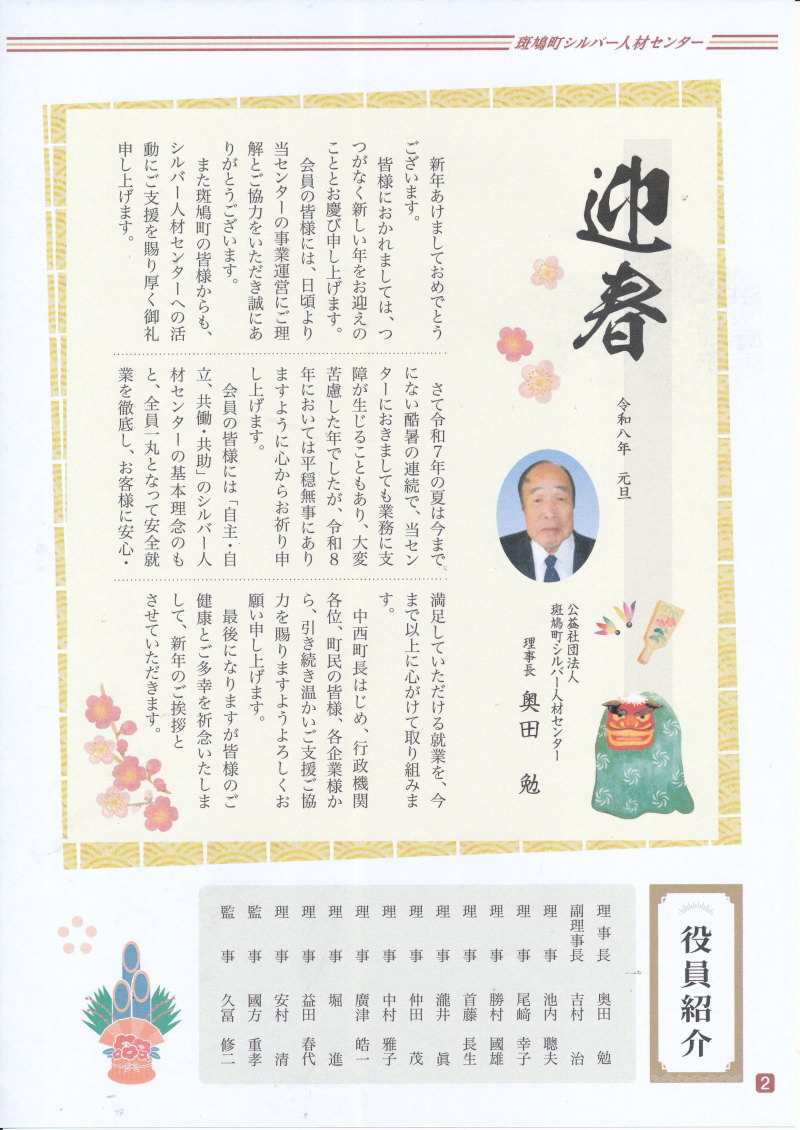 斑鳩町シルバー人材センター
迎春
令和八年　元旦
公益社団法人
斑鳩町シルバー人材センター
理事長　奥田　勉
新年あけましておめでとう
ございます。
皆様におかれましては、つ
つがなく新しい年をお迎えの
こととお慶び申し上げます。
会員の皆様には、日頃より
当センターの事業運営にご理
解とご協力をいただき誠にあ
りがとうございます。
また斑鳩町の皆様からも、
シルバー人材センターへの活
動にご支援を賜り厚く御礼
申し上げます。
さて令和７年の夏は今まで
にない酷暑の連続で、当セン
ターにおきましても業務に支
障が生じることもあり、大変
苦慮した年でしたが、令和８
年においては平穏無事にあり
ますように心からお祈り申
し上げます。
会員の皆様には「自主・自
立、共働・共助」のシルバー人
材センターの基本理念のも
と、全員一丸となって安全就
業を徹底し、お客様に安心・
満足していただける就業を、今
まで以上に心がけて取り組みま
す。
中西町長はじめ、行政機関
各位、町民の皆様、各企業様か
ら、引き続き温かいご支援ご協
力を賜りますようよろしくお
願い申し上げます。
最後になりますが皆様のご
健康とご多幸を祈念いたしま
して、新年のご挨拶と
させていただきます。
役員紹介
理事長　奥田　勉
副理事長　吉村　治
理事　池内　聰夫
理事　尾﨑　幸子
理事　勝村　國雄
理事　首藤　長生
理事　瀧井　眞
理事　仲田　茂
理事　中村　雅子
理事　廣津　皓一
理事　堀　進
理事　益田　春代
理事　安村　清
監事　國方　重孝
監事　久冨　修二
2